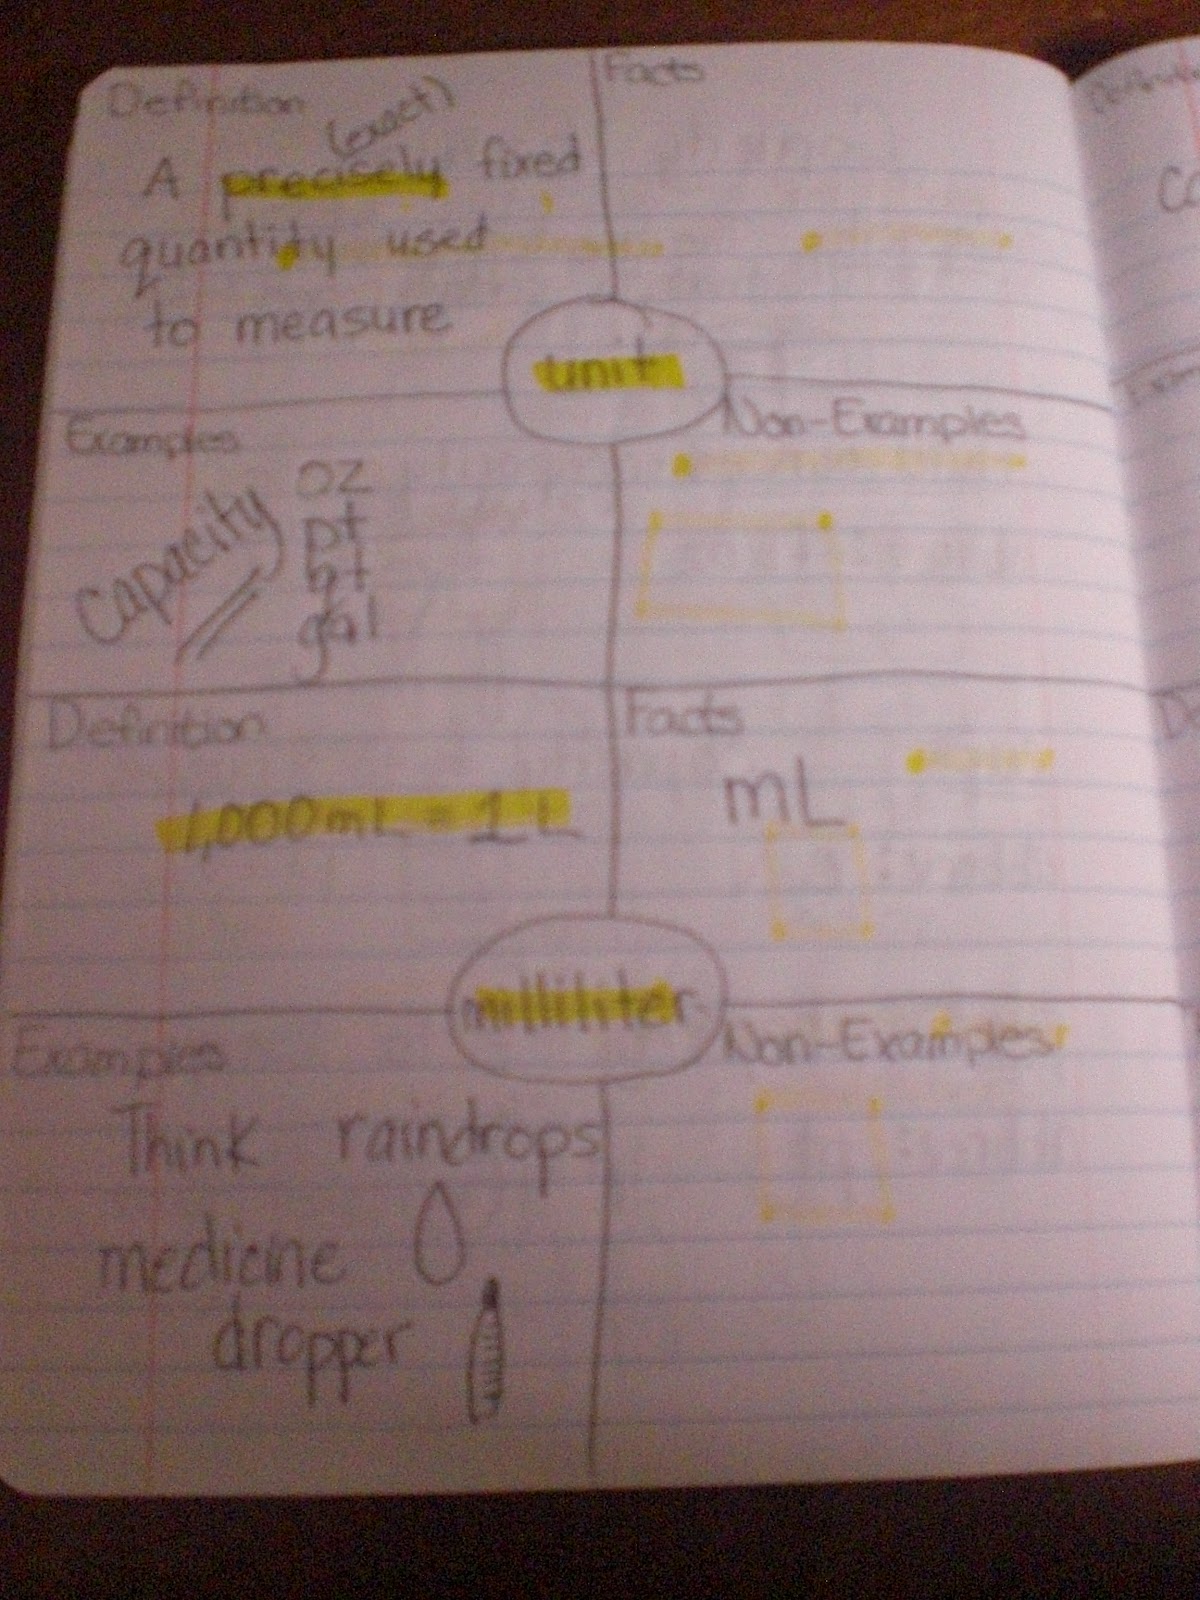 Definition
(exact)
A precisely fixed
quantity used
to measure
Facts
unit
Examples
Capacity
oz
pt
qt
gal
Non-Examples
Definition
1,000mL = 1 L
Facts
mL
milliliter
Examples
Think raindrops
medicine
dropper
Non-Examples